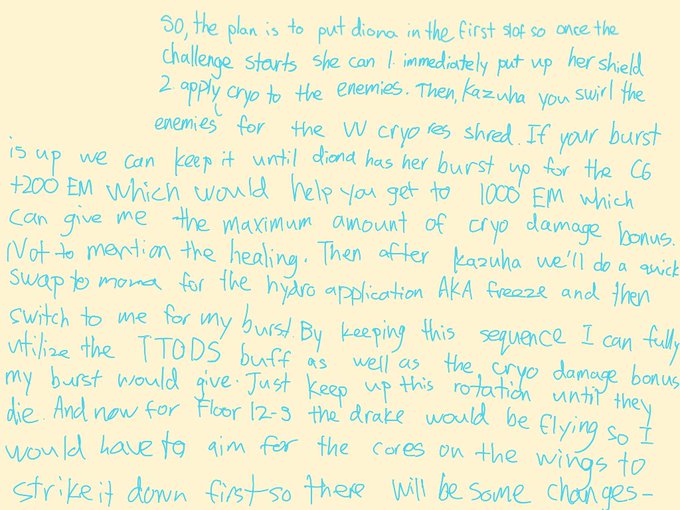 So, the plan is to put diona in the first slot so once the
challenge starts she can 1. immediately put up her shield
2 apply cryo to the enemies. Then, Kazuha you swirl the
enemies for the VV cryo res shred. If your burst
is up we can keep it until diona has her burst up for the C6
+200 EM which would help you get to 1000 EM which
can give me the maximum amount of cryo damage bonus.
Not to mention the healing. Then after kazuha we'll do a quick
swap to mona for the hydro application AKA freeze and then
switch to me for my burst. By keeping this sequence I can fully
utilize the TTODS buff as well as the cryo damage bonus
my burst would give. Just keep up this rotation until they
die. And now for Floor 12-3 the drake would be flying so I
would have to aim for the cores on the wings to
strike it down first so there will be some changes-